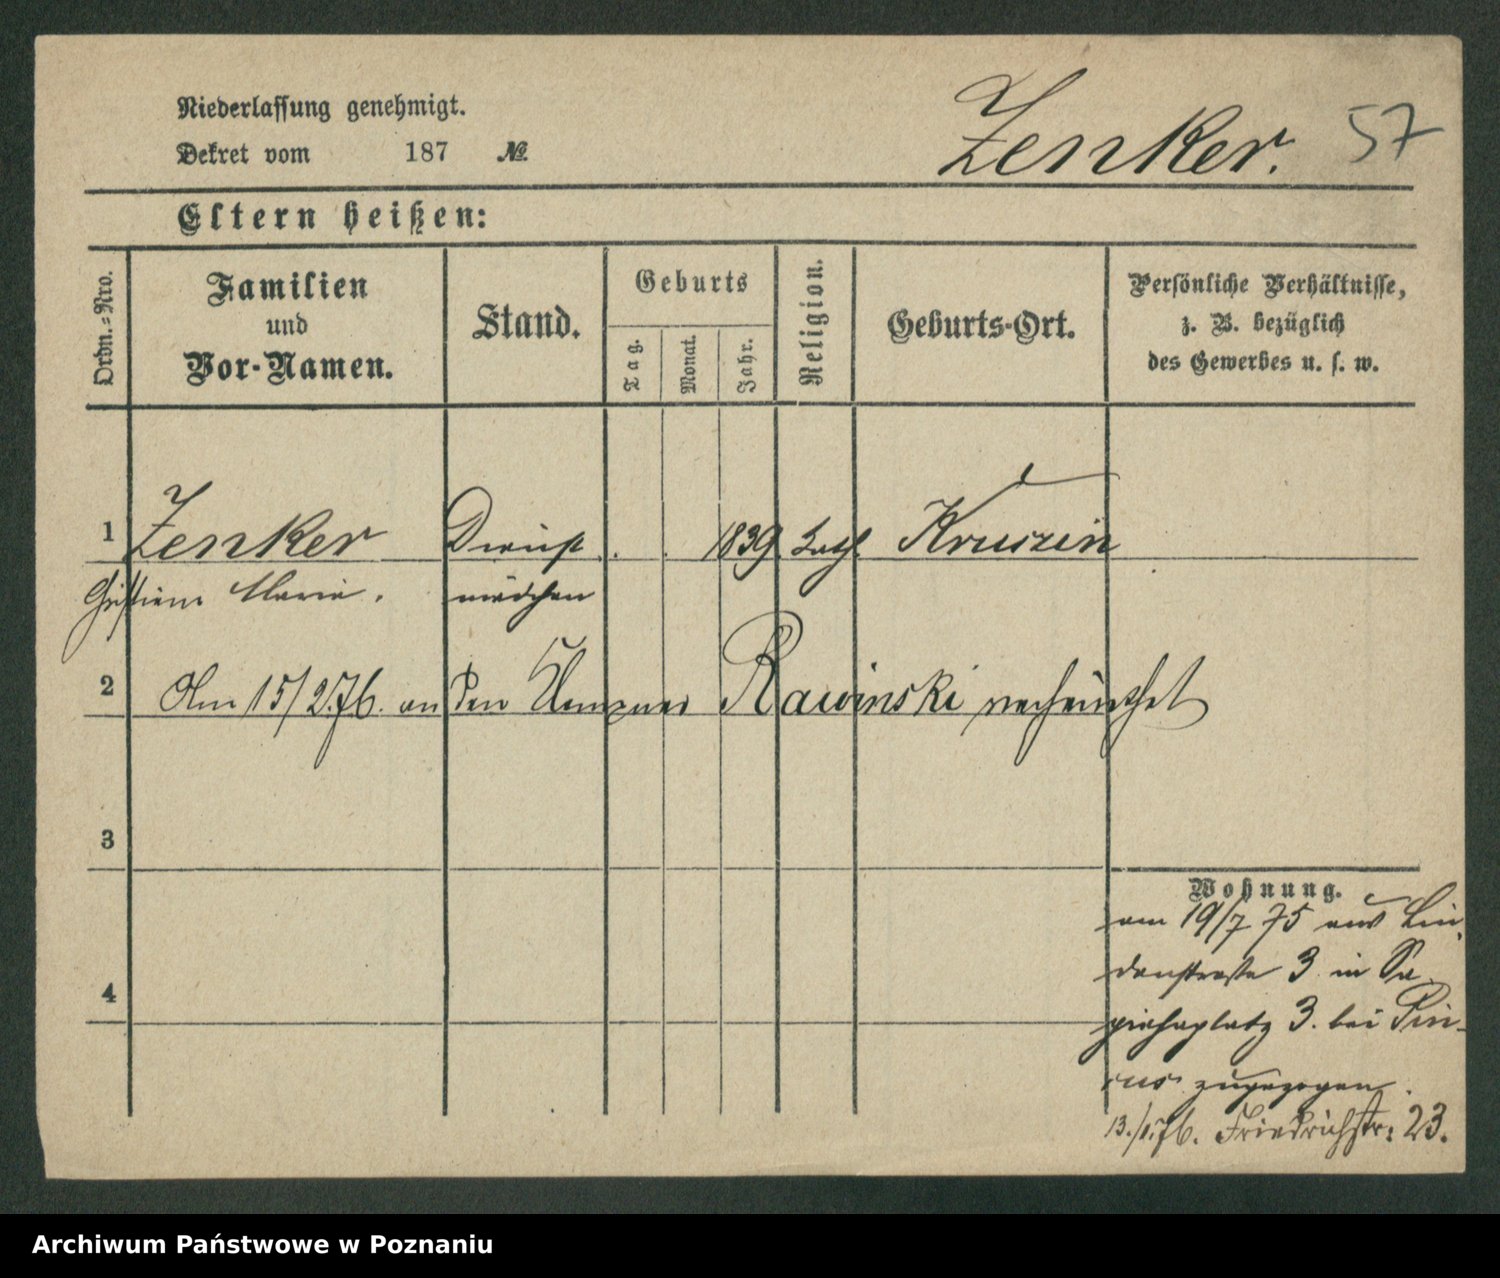 Niederlassung genehmigt.
Dekret vom 187 №
Zenker. 57
Eltern heißen:
Ordn.-Nro.
Familien
und
Vor-Namen.
Stand.
Geburts
Tag.
Monat.
Jahr.
Religion.
Geburts-Ort.
Persönliche Verhältnisse,
z. B. bezüglich
des Gewerbes u. s. w.
1 Zenker Dienst 1839 Kath Kruszin
Marie. mädchen
2 Am 15/2.76. an den Rawinski verheirathet
3
Wohnung.
am 19/7 75 aus Lin-
denstraße 3 in Sa
piehaplatz 3. bei Pin-
cus zugezogen.
4
13./1.76. Friedrichstr: 23.
Archiwum Państwowe w Poznaniu